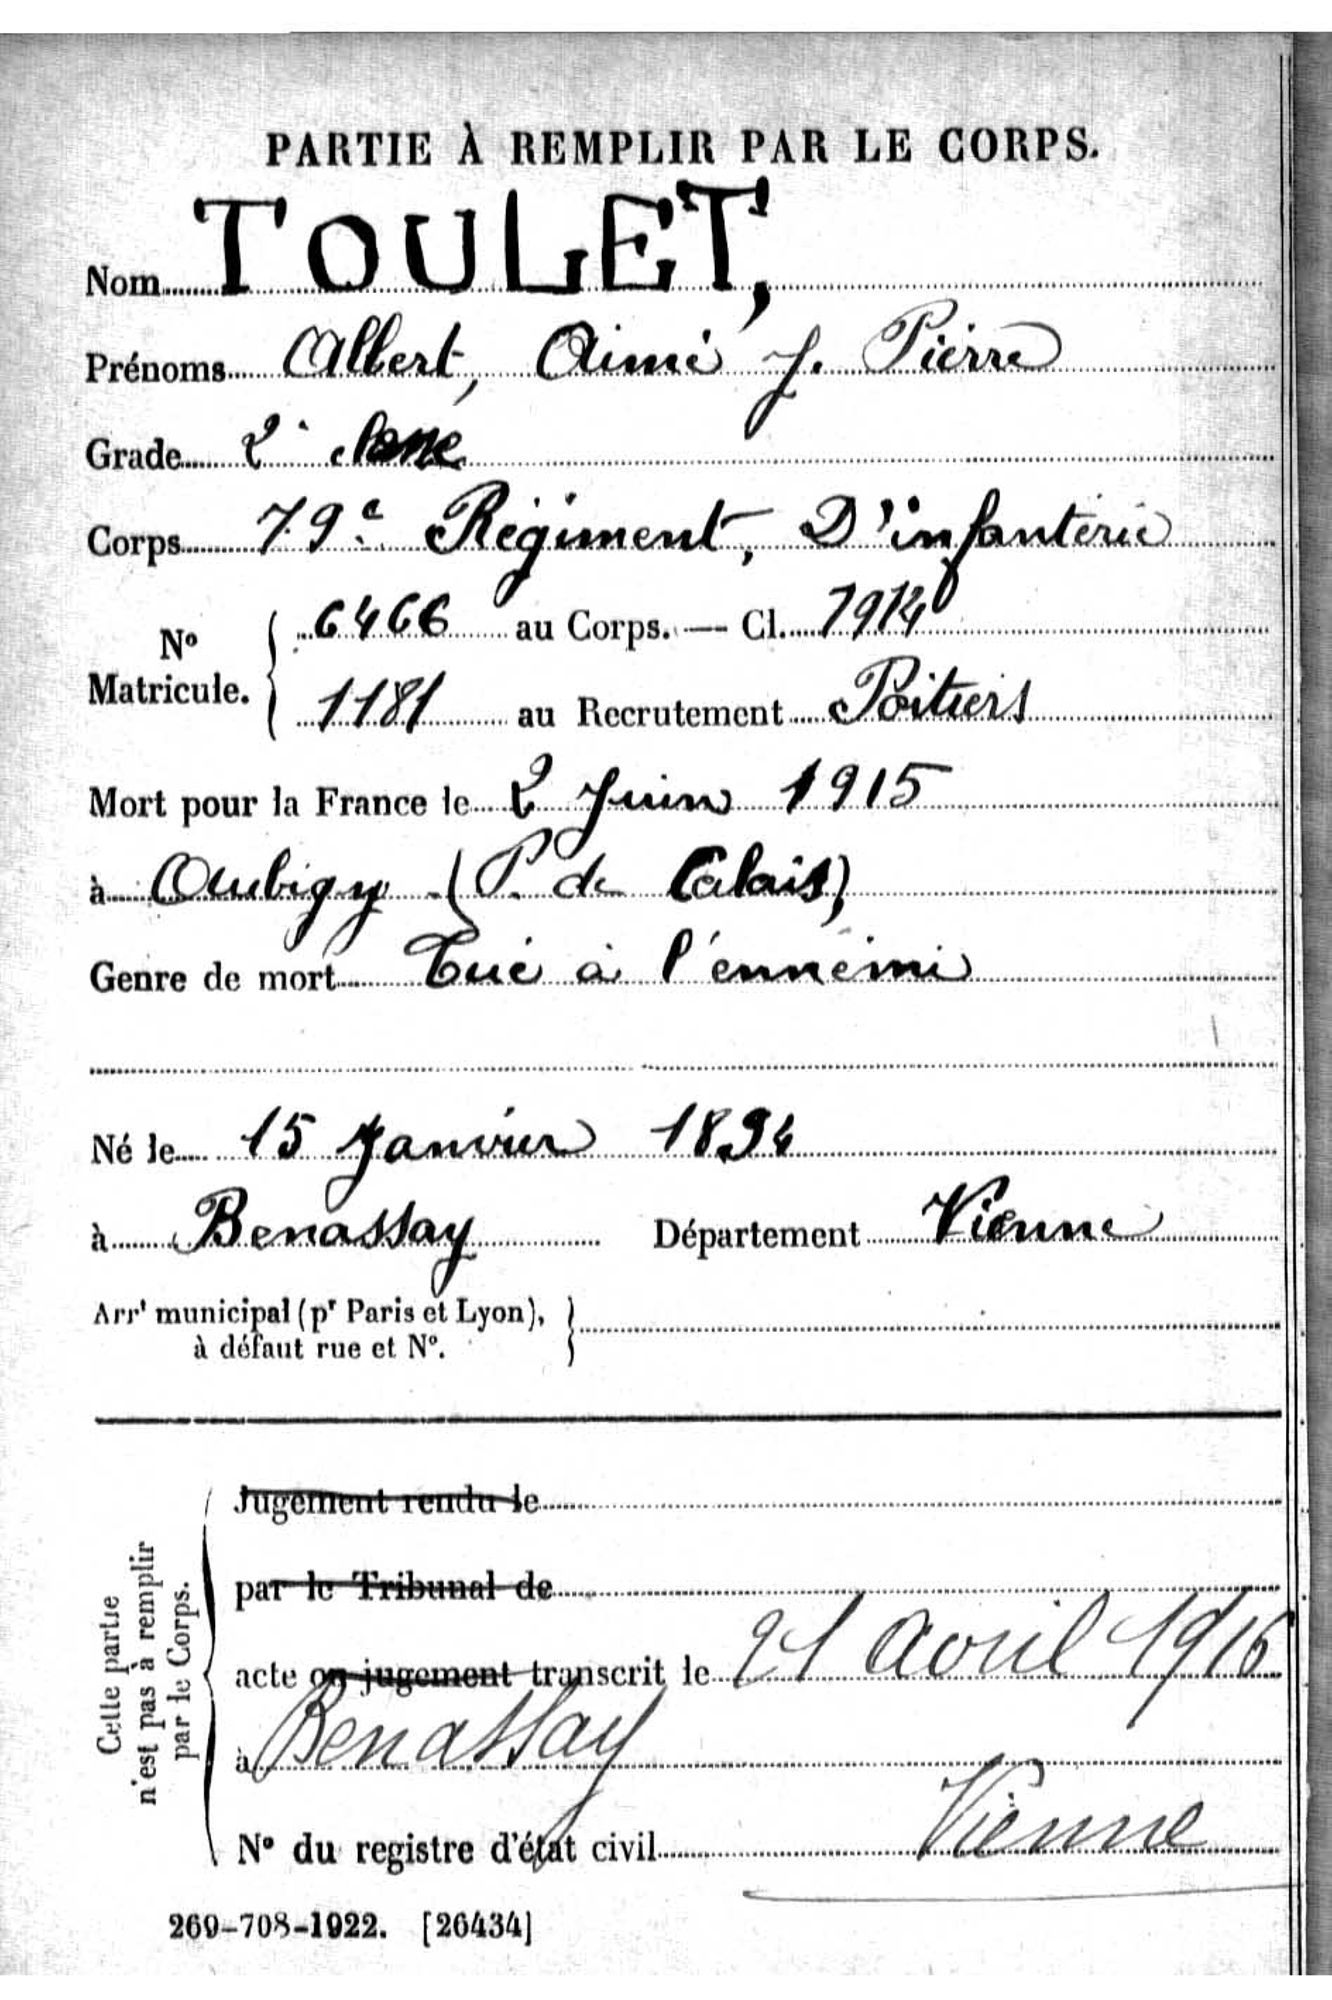 PARTIE À REMPLIR PAR LE CORPS.
Nom TOULET,
Prénoms Albert, Aimé J. Pierre
Grade 2e classe
Corps 79e Régiment, D'infanterie
No Matricule. { 6466 au Corps. — Cl. 1914
1181 au Recrutement Poitiers
Mort pour la France le 2 Juin 1915
à Aubigy (P. de Calais)
Genre de mort Tué à l'ennemi
Né le 15 Janvier 1894
à Benassay Département Vienne
Arrt municipal (pr Paris et Lyon), }
à défaut rue et No.
Cette partie
n'est pas à remplir
par le Corps.
Jugement rendu le
par le Tribunal de
acte ou jugement transcrit le 21 avril 1916
à Benassay
Vienne
No du registre d'état civil
269-708-1922. [26434]